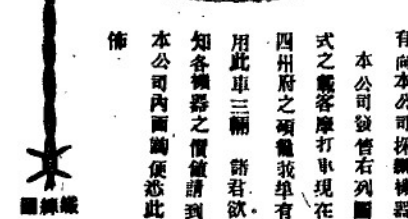 有向本公司採購機器
本公司發售右列圖
式之載客摩打車現在
四州府之碩龍莪埠有
用此車三輛 諸君欲.
知各機器之價値請到
本公司內面詢便悉此
佈
鐵練圖